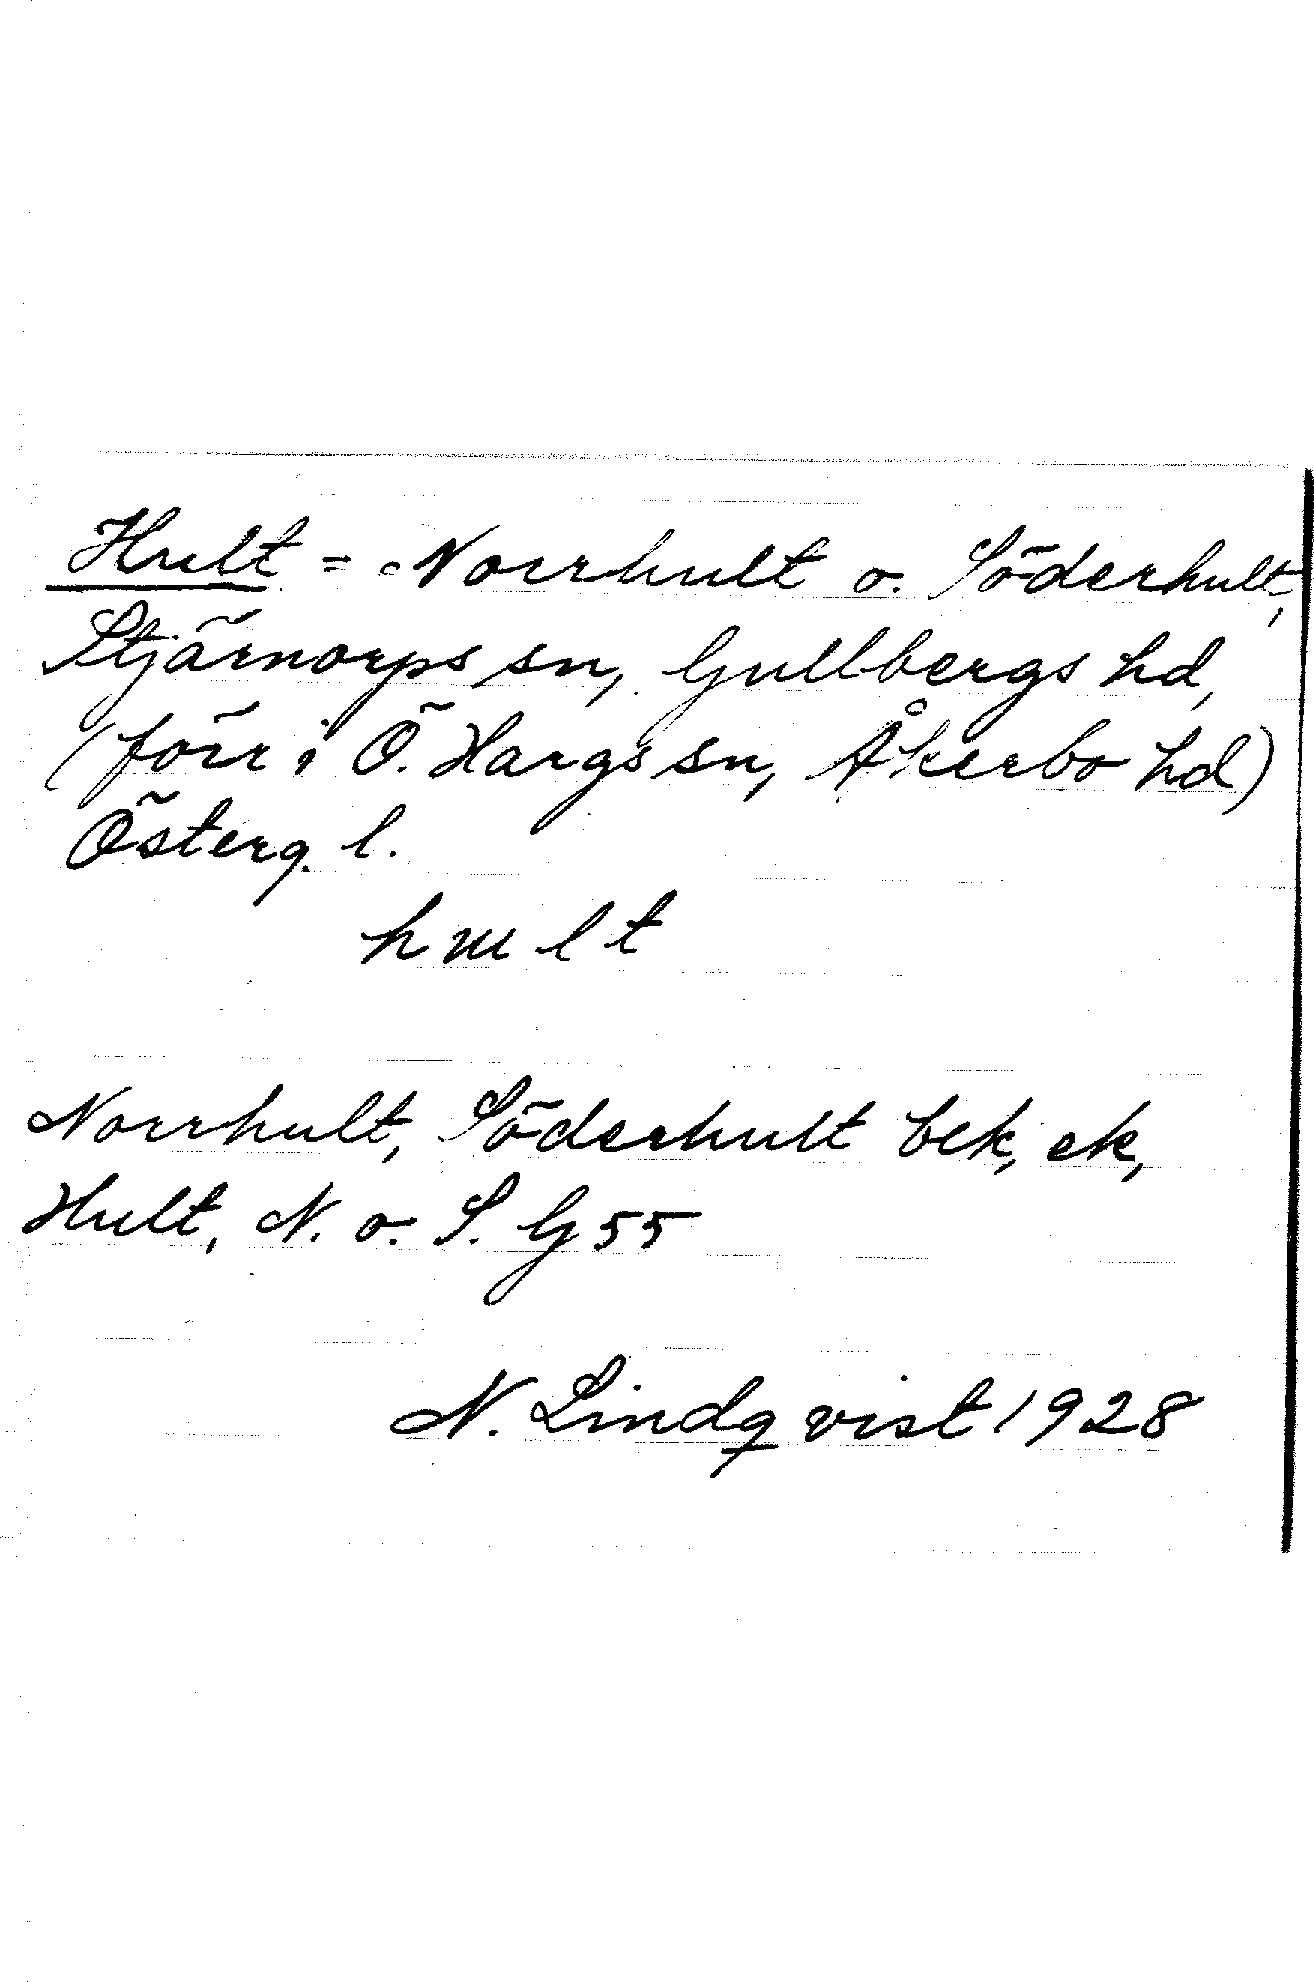 Hult = Norrhult o. Söderhult,
Stjärnorps sn, Gullbergs hd,
(förr i Ö. Hargs sn, Åkerbo hd)
Österg. l.
hɯlt
Norrhult, Söderhult bek, ek,
Hult, N. o. S. G 55
N. Lindqvist 1928